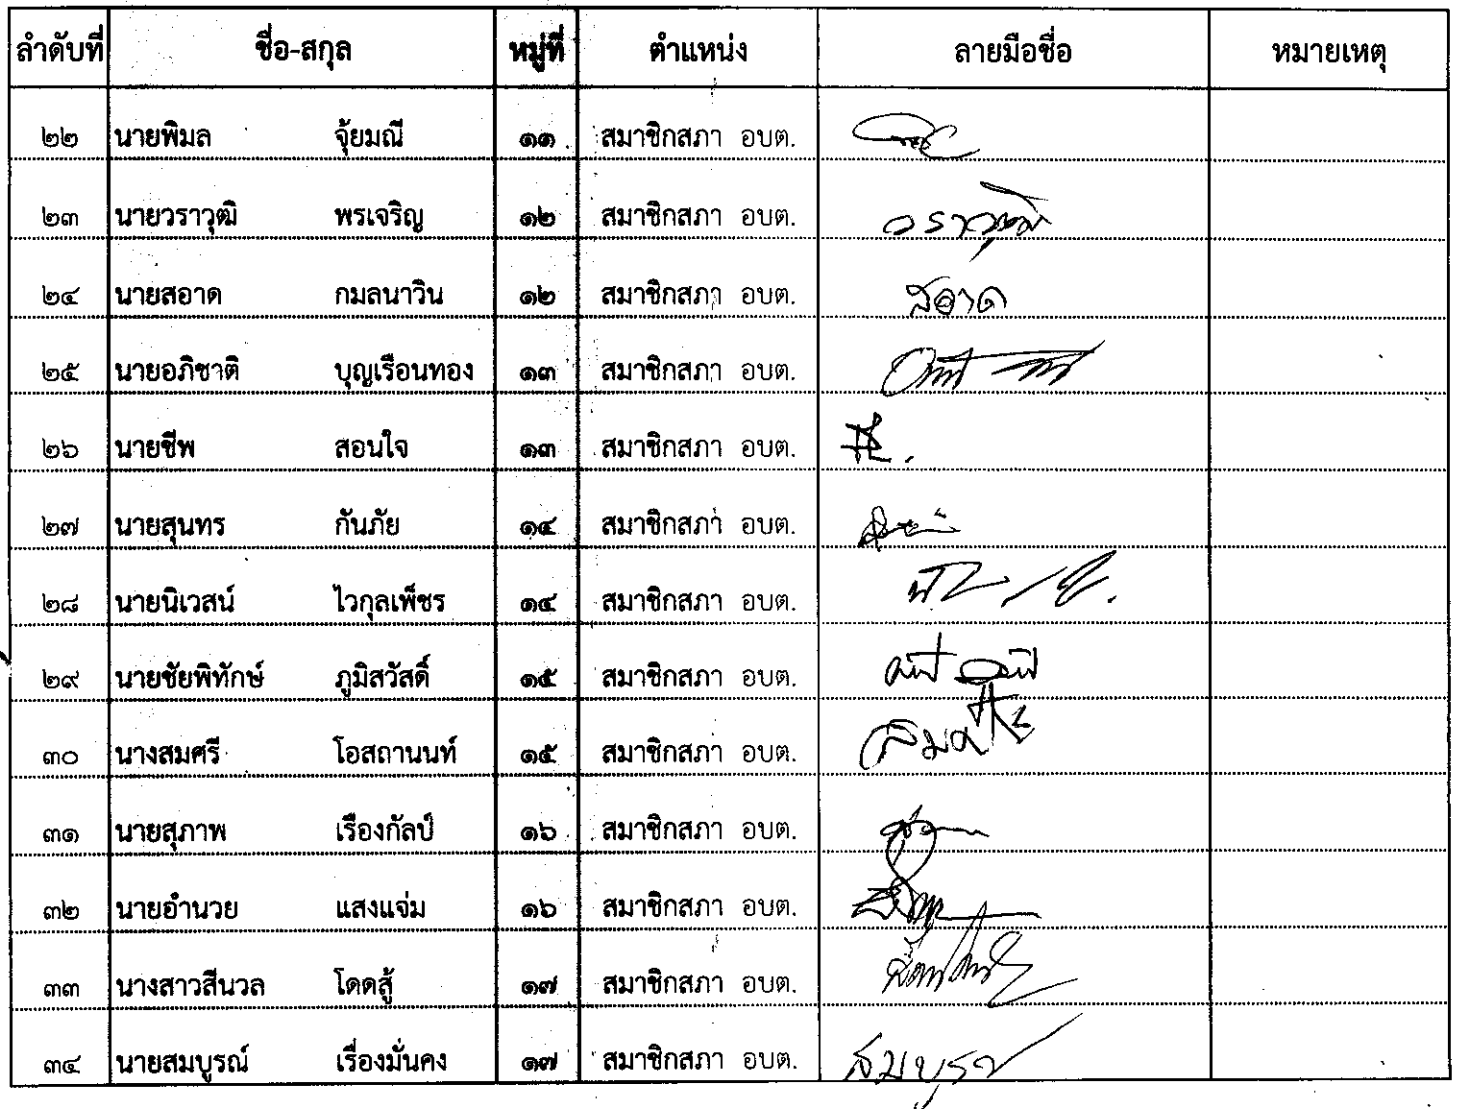 ลำดับที่ ชื่อ-สกุล หมู่ที่ ตำแหน่ง ลายมือชื่อ หมายเหตุ
๒๒ นายพิมล จุ้ยมณี ๑๑ สมาชิกสภา อบต.
๒๓ นายวราวุฒิ พรเจริญ ๑๒ สมาชิกสภา อบต. วราวุฒิ
๒๔ นายสอาด กมลนาวิน ๑๒ สมาชิกสภา อบต. สอาด
๒๕ นายอภิชาติ บุญเรือนทอง ๑๓ สมาชิกสภา อบต.
๒๖ นายชีพ สอนใจ ๑๓ สมาชิกสภา อบต.
๒๗ นายสุนทร กันภัย ๑๔ สมาชิกสภา อบต.
๒๘ นายนิเวสน์ ไวกุลเพ็ชร ๑๔ สมาชิกสภา อบต.
๒๙ นายชัยพิทักษ์ ภูมิสวัสดิ์ ๑๕ สมาชิกสภา อบต.
๓๐ นางสมศรี โอสถานนท์ ๑๕ สมาชิกสภา อบต. สมศรี
๓๑ นายสุภาพ เรืองกัลป์ ๑๖ สมาชิกสภา อบต.
๓๒ นายอำนวย แสงแจ่ม ๑๖ สมาชิกสภา อบต.
๓๓ นางสาวสีนวล โดดสู้ ๑๗ สมาชิกสภา อบต.
๓๔ นายสมบูรณ์ เรื่องมั่นคง ๑๗ สมาชิกสภา อบต. สมบูรณ์